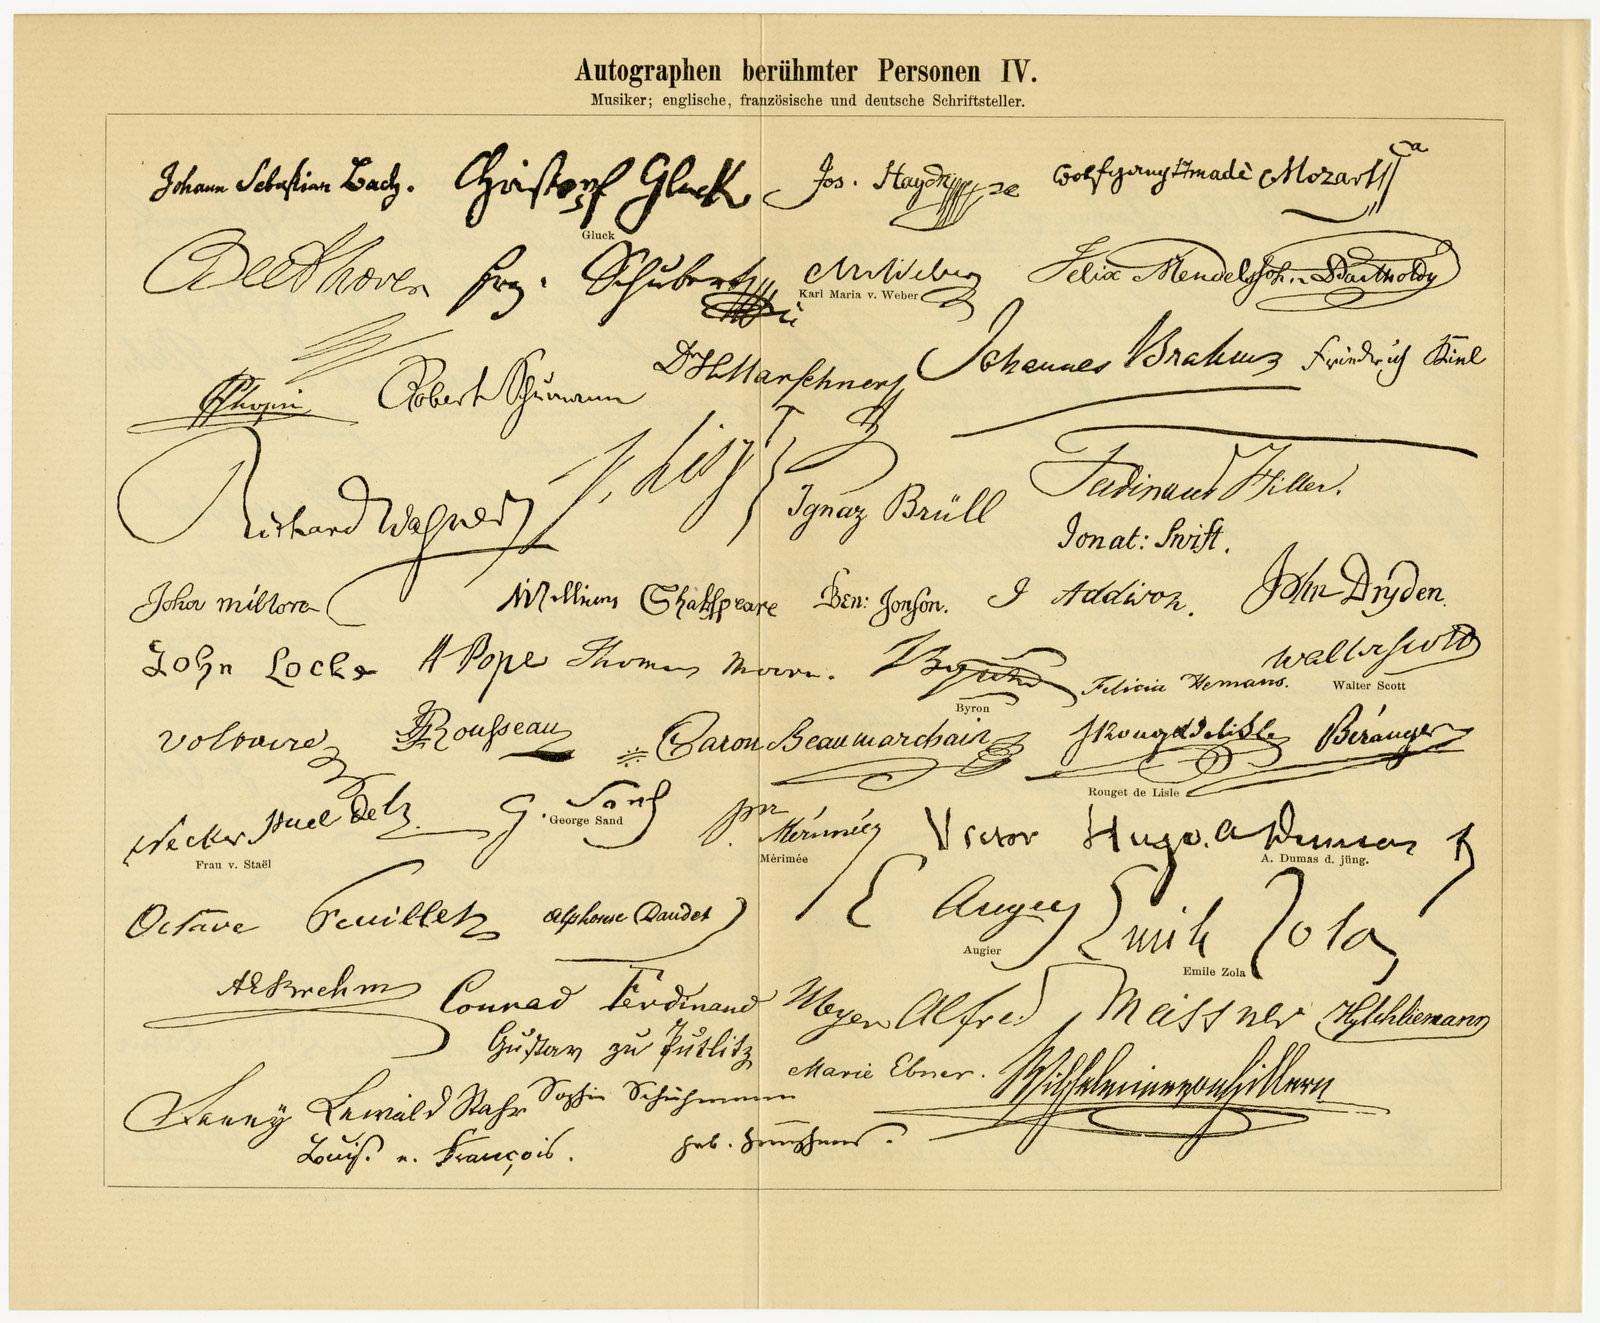 Autographen berühmter Personen IV.
Musiker; englische, französische und deutsche Schriftsteller.
Johann Sebastian Bach. Christoph Gluck Jos. Haydn Wolfgang Amadè Mozart
Gluck
Beethoven Frz. Schubert CMvWeber Felix Mendelssohn Bartholdy
Karl Maria v. Weber
FChopin Robert Schumann Dr HMarschner Johannes Brahms Friedrich Kiel
Richard Wagner F. Liszt Ignaz Brüll Ferdinand Hiller.
Jonat: Swift.
John Milton William Shakspeare Ben: Jonson. J Addison. John Dryden.
John Locke A Pope Thomas Moore. Byron Felicia Hemans. Walter Scott
Byron Walter Scott
Voltaire JJRousseau Caron Beaumarchais Rouget de Lisle Béranger
Rouget de Lisle
Necker Stael de H. G. Sand Pr Mérimée Victor Hugo. A Dumas f
Frau v. Staël George Sand Mérimée A. Dumas d. jüng.
Octave Feuillet Alphonse Daudet E Augier Emile Zola
Augier Emile Zola
AEBrehm Conrad Ferdinand Meyer Alfred Meissner HySchliemann
Gustav zu Putlitz
Marie Ebner. Wilhelmine von Hillern
Fanny Lewald Stahr Sophie
Louise v. François. geb.